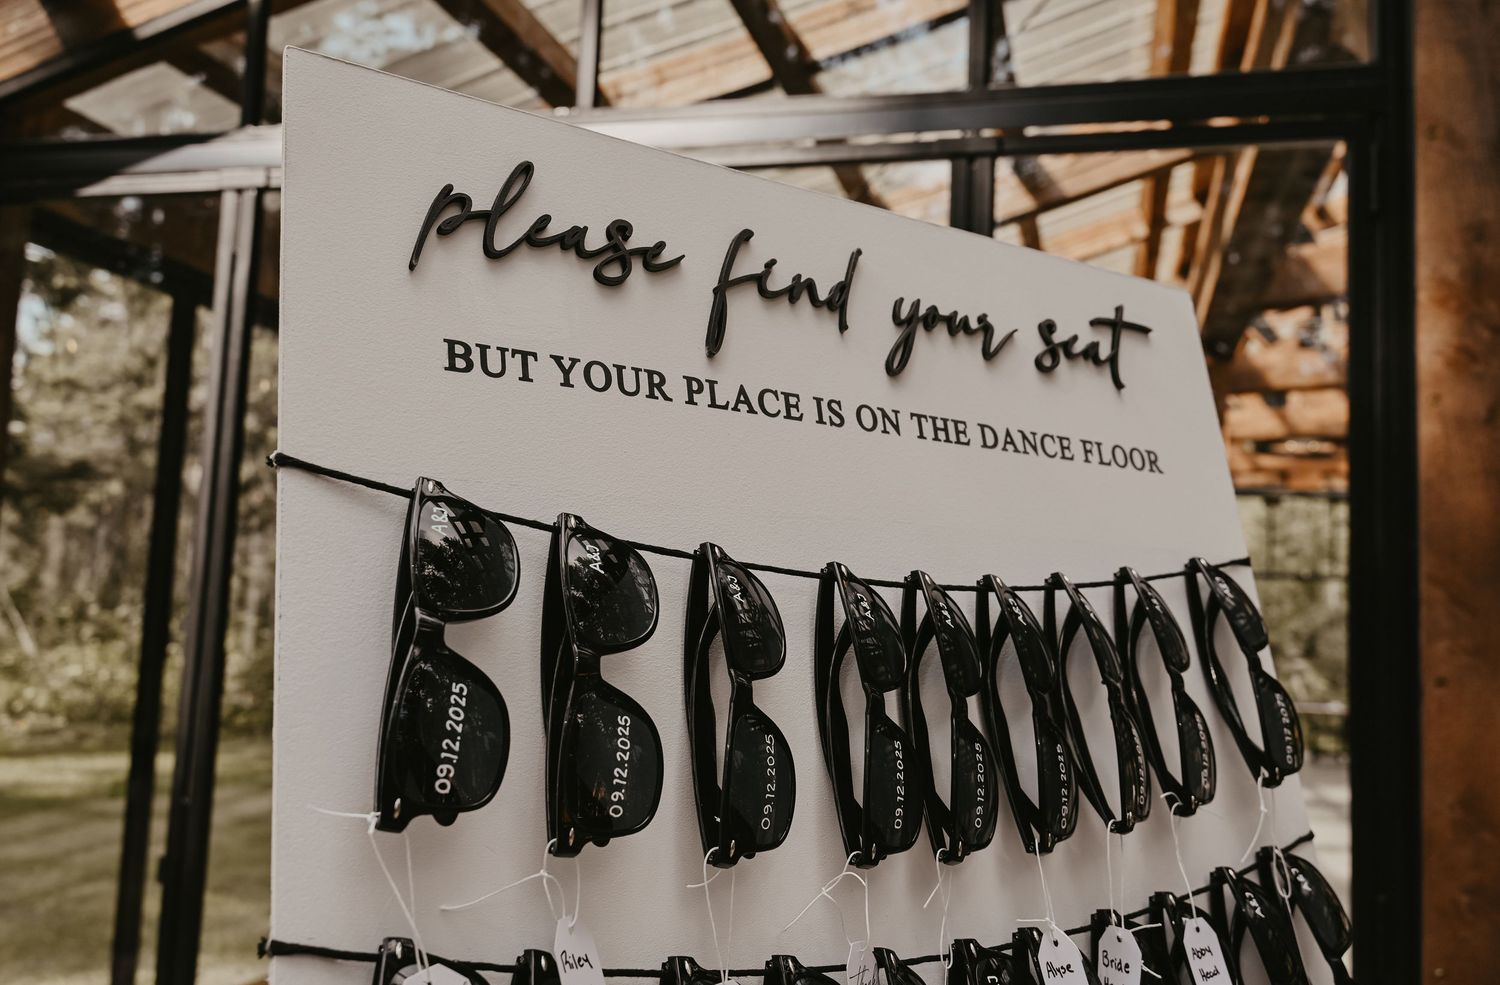 please find your seat
BUT YOUR PLACE IS ON THE DANCE FLOOR
A&J
A&J
A&J
A&J
A&J
A&J
09.12.2025
09.12.2025
09.12.2025
09.12.2025
09.12.2025
09.12.2025
09.12.2025
09.12.2025
09.12.2025
Riley
Alyse
Bride
Abby
Head